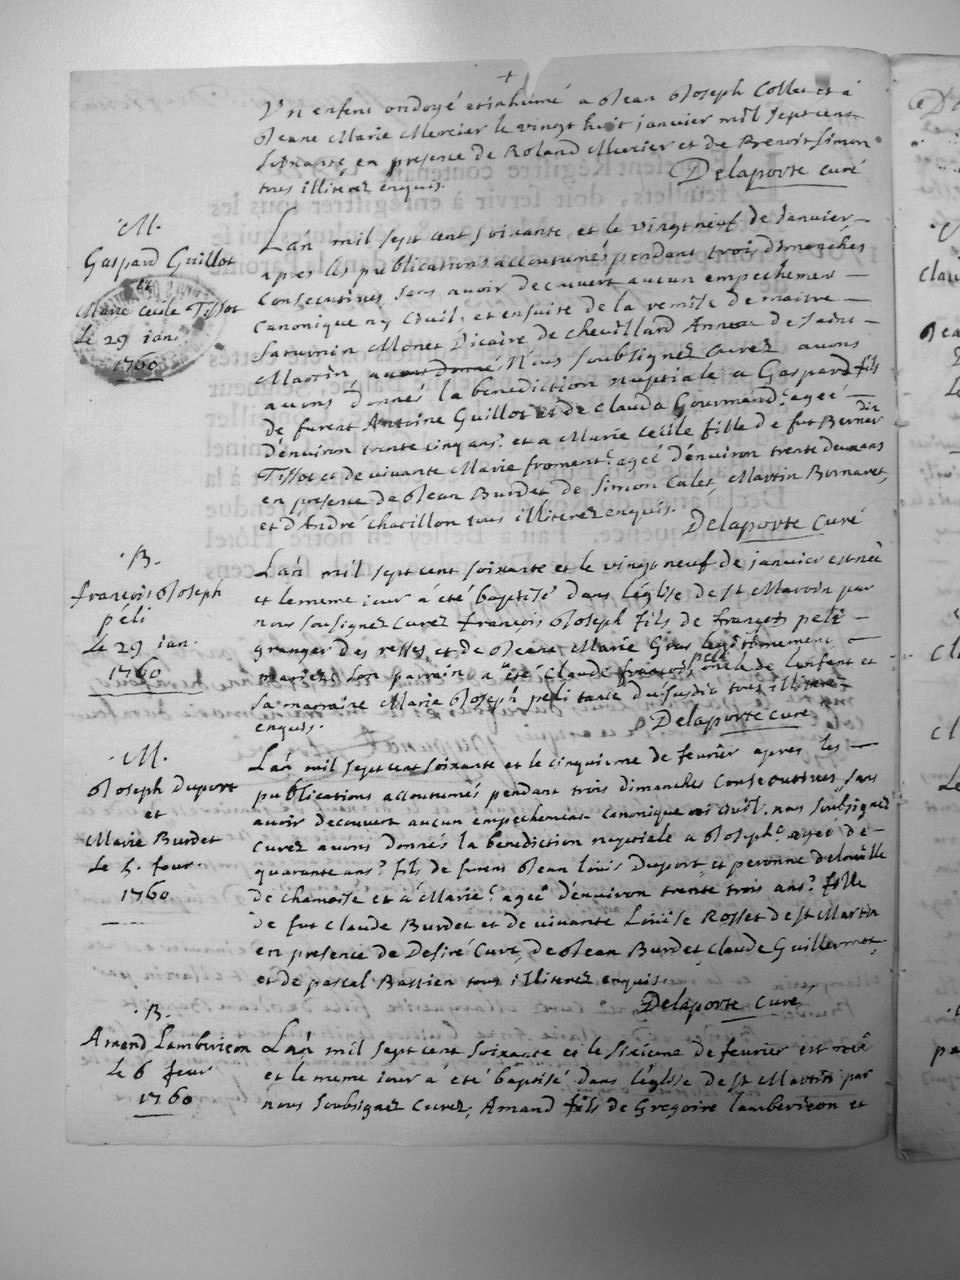 +
Un enfent ondoyé et inhumé a Jean Joseph Collet et a
Jeane Marie Mercier le vingt huit janvier mil sept cent
soixante en presence de Roland Mercier et de Benoit Simon
tous illiterez enquis.
Delaporte curé
M.
Gaspard Guillot
et
Marie Cecile Tissot
le 29 jan.
1760
L'an mil sept cent soixante et le vingt neuf de Janvier
apres les publications accoutumés pendant trois dimanches
consecutives sans avoir decouvert aucun empechement
canonique ny civil, et ensuite de la remise de maitre
Saturnin Monet Vicaire de Chevillard Annexe de Saint
Martin, Nous soubsignez curez avons
avons donnés la benediction nuptiale a Gaspard fils
de furent Antoine Guillot et de Clauda Gourmand agéé
d'environ trente cinq ans et a Marie Cecile fille de fut Bernar
Tissot et de vivante Marie froment agéé d'environ trente deux ans
en presence de Jean Burdet de Simon Calet, Martin Bornaret,
et d'André chatillon tous illiterez enquis.
Delaporte curé
B.
françois Joseph
péli
le 29 jan.
1760
L'an mil sept cent soixante et le vingt neuf de janvier est neé
et le meme jour a été baptisé dans l'église de st Martin par
nous sousignez curez françois Joseph fils de françois peli
granger des et de Jeane Marie Gros legitimement
mariez son parrain a été Claude peli oncle de l'enfent et
sa marraine Marie Joseph peli tante du susdit tous illiterez
enquis.
Delaporte curé
M.
Joseph Duport
et
Marie Burdet
le 5. fevr.
1760
L'an mil sept cent soixante et le cinquieme de fevrier apres les
publications accoutumés pendant trois dimanches consecutives sans
avoir decouvert aucun empechement canonique ni civil. nous soubsignez
curez avons donnés la benediction nuptiale a Joseph ageé de
quarante ans fils de furent Jean louis Duport et peronne
de chamoise et a Marie ageé d'environ trente trois ans fille
de fut Claude Burdet et de vivante Louise Rosset de st Martin
en presence de Desiré Curt, de Jean Burdet, Claude Guillermet,
et de pascal Bastien tous illiterez enquis.
Delaporte curé
B.
Amand Lambericon
le 6 fevr
1760
L'an mil sept cent soixante et le sixieme de fevrier est neé
et le meme jour a été baptisé dans l'église de st Martin par
nous soubsignez curez, Amand fils de Gregoire lambericon et